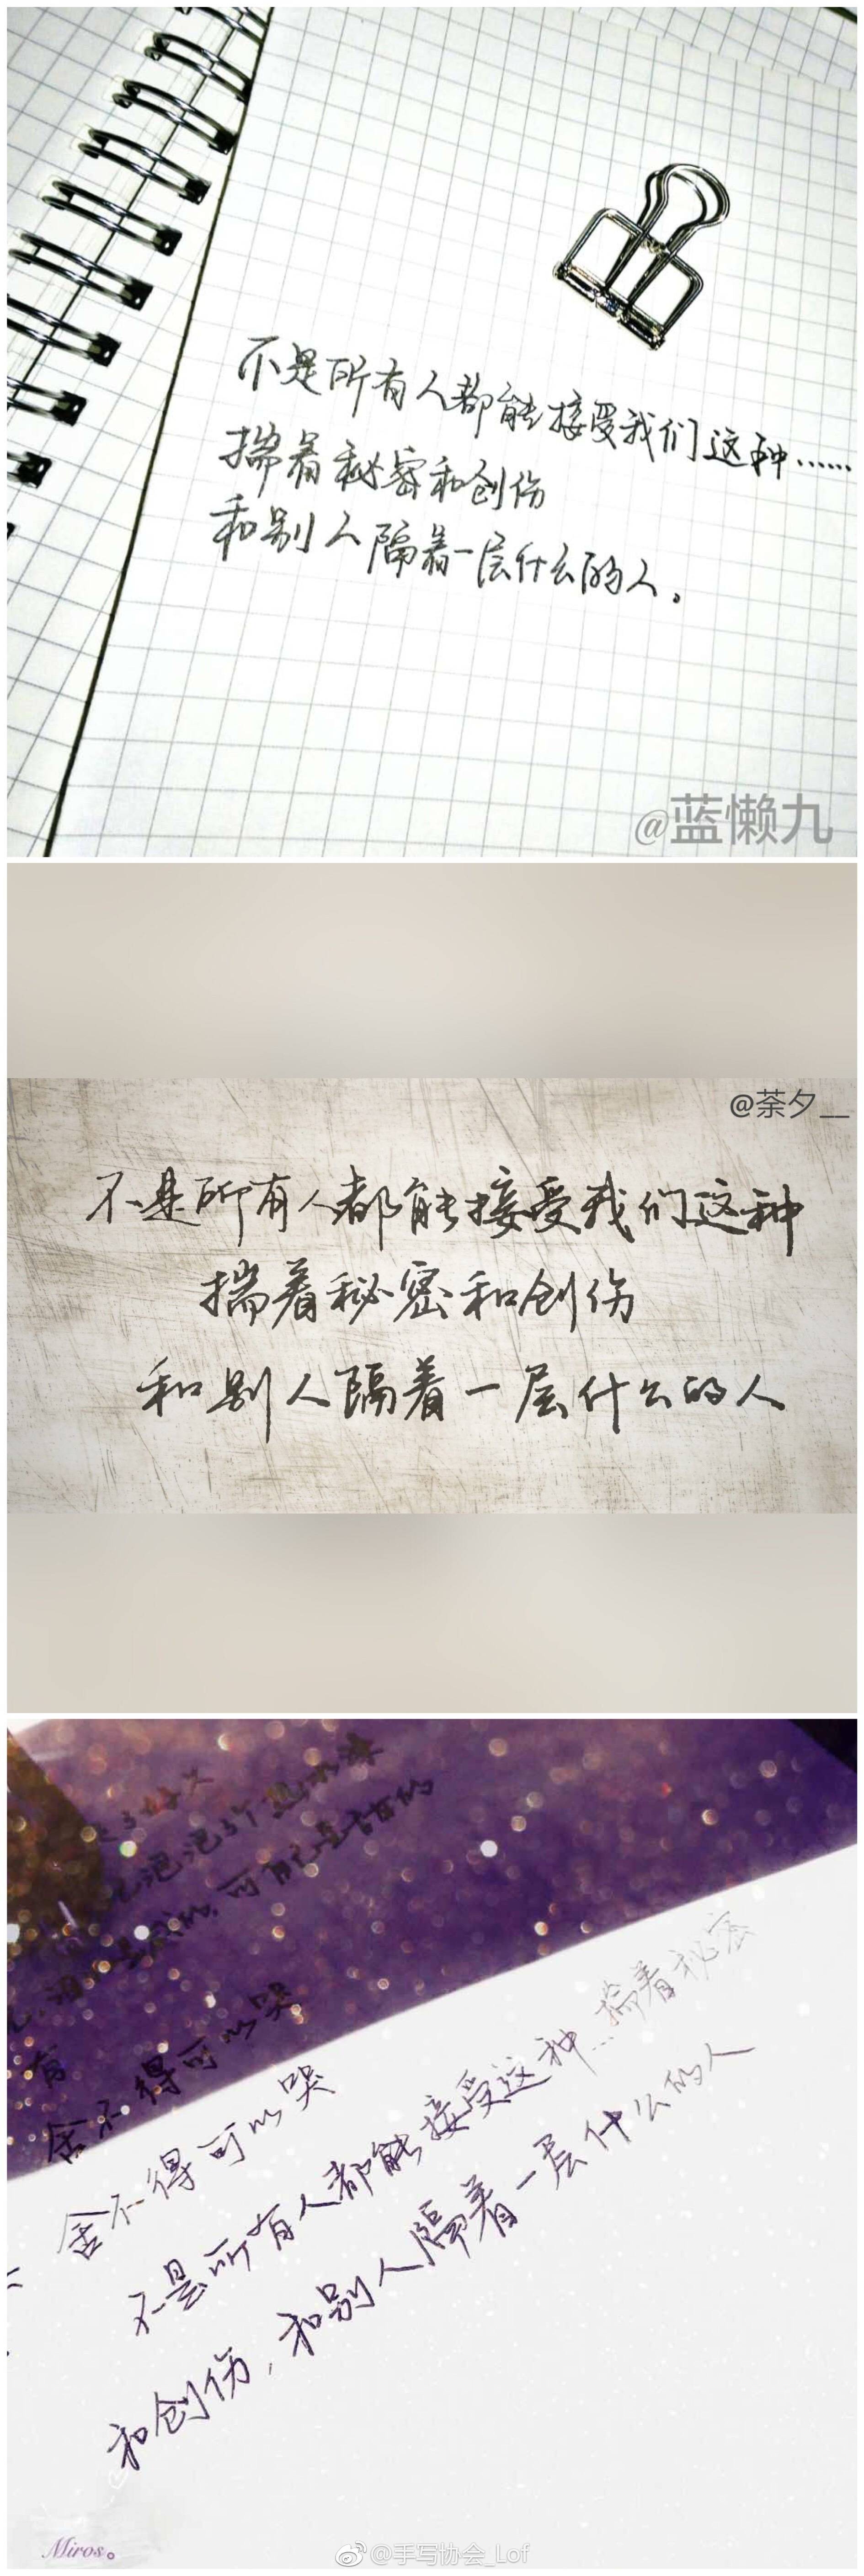 不是所有人都能接受我们这种……
揣着秘密和创伤
和别人隔着一层什么的人。
@蓝懒九
@荼夕__
不是所有人都能接受我们这种
揣着秘密和创伤
和别人隔着一层什么的人
舍不得可以哭
舍不得可以哭
不是所有人都能接受这种…揣着秘密
和创伤,和别人隔着一层什么的人
Miros。
@手写协会_Lof